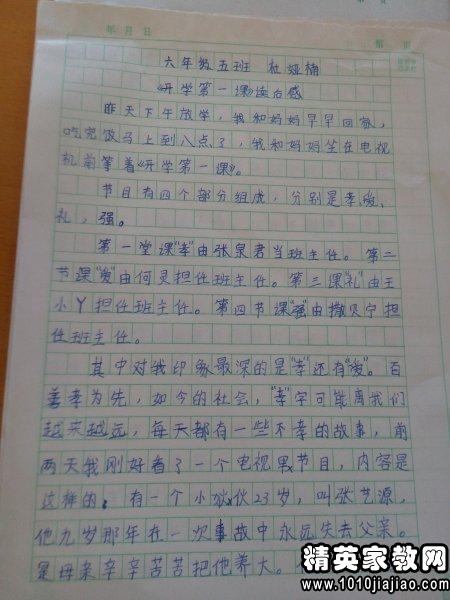 年 月 日
第 页
六年级五班 杜娅楠
《开学第一课》读后感
昨天下午放学，我和妈妈早早回家，
吃完饭马上到八点了，我和妈妈坐在电视
机前等着《开学第一课》。
节目有四个部分组成，分别是孝、爱、
礼，强。
第一堂课"孝"由张泉君当班主任。第二
节课"爱"由何炅担任班主任。第三课"礼"由王
小丫担任班主任。第四节课"强"由撒贝宁担
任班主任。
其中对我印象最深的是"孝"还有"爱"。百
善孝为先，如今的社会，"孝"字可能离我们
越来越远，每天都有一些不孝的故事，前
两天我刚好看了一个电视节目，内容是
这样的：有一个小伙23岁，叫张艺源，
他九岁那年在一次事故中永远失去父亲。
是母亲辛辛苦苦把他养大。
精英家教网
www.1010jiajiao.com